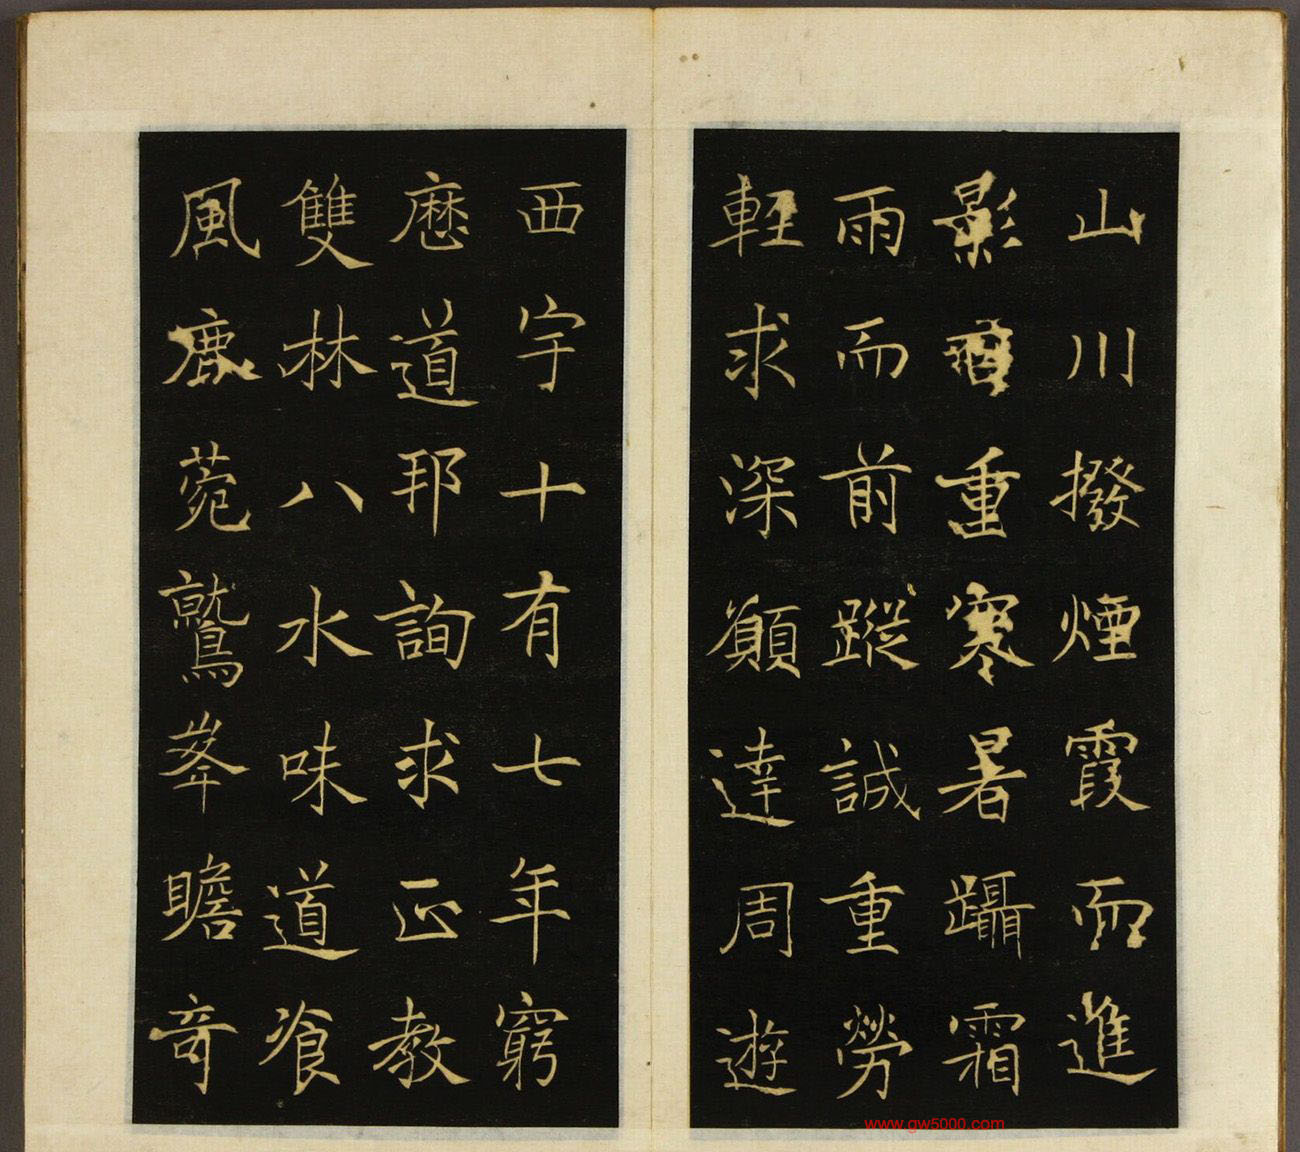 山川撥煙霞而進
影百重寒暑躡霜
雨而前蹤誠重勞
輕求深願達周遊
西宇十有七年窮
歷道邦詢求正教
雙林八水味道飡
風鹿菀鷲峯瞻奇
www.gw5000.com